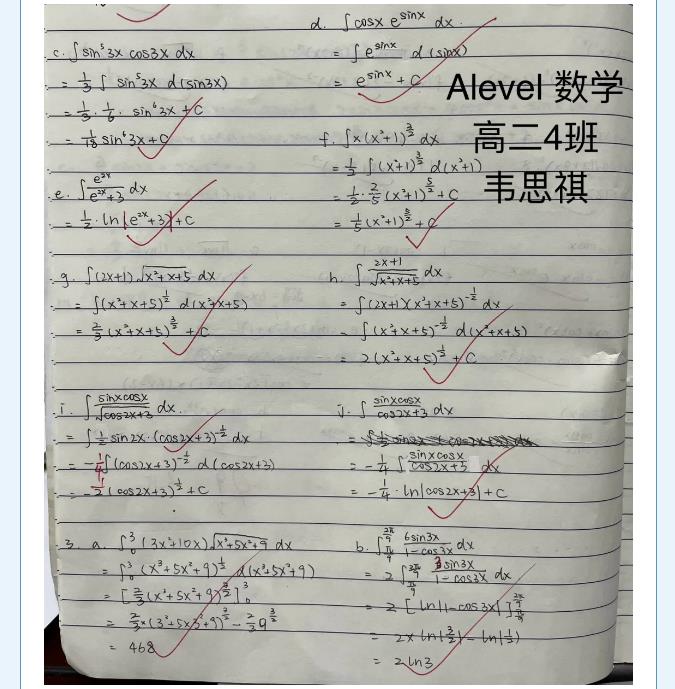 d. ∫ cosx e^sinx dx.
= ∫ e^sinx d(sinx)
= e^sinx + C
c. ∫ sin⁵3x cos3x dx
= 1/3 ∫ sin⁵3x d(sin3x)
= 1/3 · 1/6 · sin⁶3x + C
= 1/18 sin⁶3x + C
Alevel 数学
高二4班
韦思祺
e. ∫ e^2x/(e^2x+3) dx
= 1/2 · ln|e^2x+3| + C
f. ∫ x(x²+1)^3/2 dx
= 1/2 ∫ (x²+1)^3/2 d(x²+1)
= 1/2 · 2/5 (x²+1)^5/2 + C
= 1/5 (x²+1)^5/2 + C
g. ∫ (2x+1) √(x²+x+5) dx
= ∫ (x²+x+5)^1/2 d(x²+x+5)
= 2/3 (x²+x+5)^3/2 + C
h. ∫ (2x+1)/√(x²+x+5) dx
= ∫ (2x+1)(x²+x+5)^-1/2 dx
= ∫ (x²+x+5)^-1/2 d(x²+x+5)
= 2(x²+x+5)^1/2 + C
i. ∫ sinxcosx/√(cos2x+3) dx.
= ∫ 1/2 sin2x · (cos2x+3)^-1/2 dx
= -1/4 ∫ (cos2x+3)^-1/2 d(cos2x+3)
= -1/2 (cos2x+3)^1/2 + C
j. ∫ sinxcosx/(cos2x+3) dx
= -1/4 ∫ sinxcosx/(cos2x+3) dx
= -1/4 · ln|cos2x+3| + C
3. a. ∫₀³ (3x²+10x) √(x³+5x²+9) dx
= ∫₀³ (x³+5x²+9)^1/2 d(x³+5x²+9)
= [2/3 (x³+5x²+9)^3/2]₀³
= 2/3 × (3³+5×3²+9)^3/2 - 2/3 9^3/2
= 468
b. ∫_(π/9)^(2π/9) 6sin3x/(1-cos3x) dx
= 2 ∫_(π/9)^(2π/9) 3sin3x/(1-cos3x) dx
= 2 [ln|1-cos3x|]_(π/9)^(2π/9)
= 2 × ln|3/2| - ln|1/2|
= 2 ln3